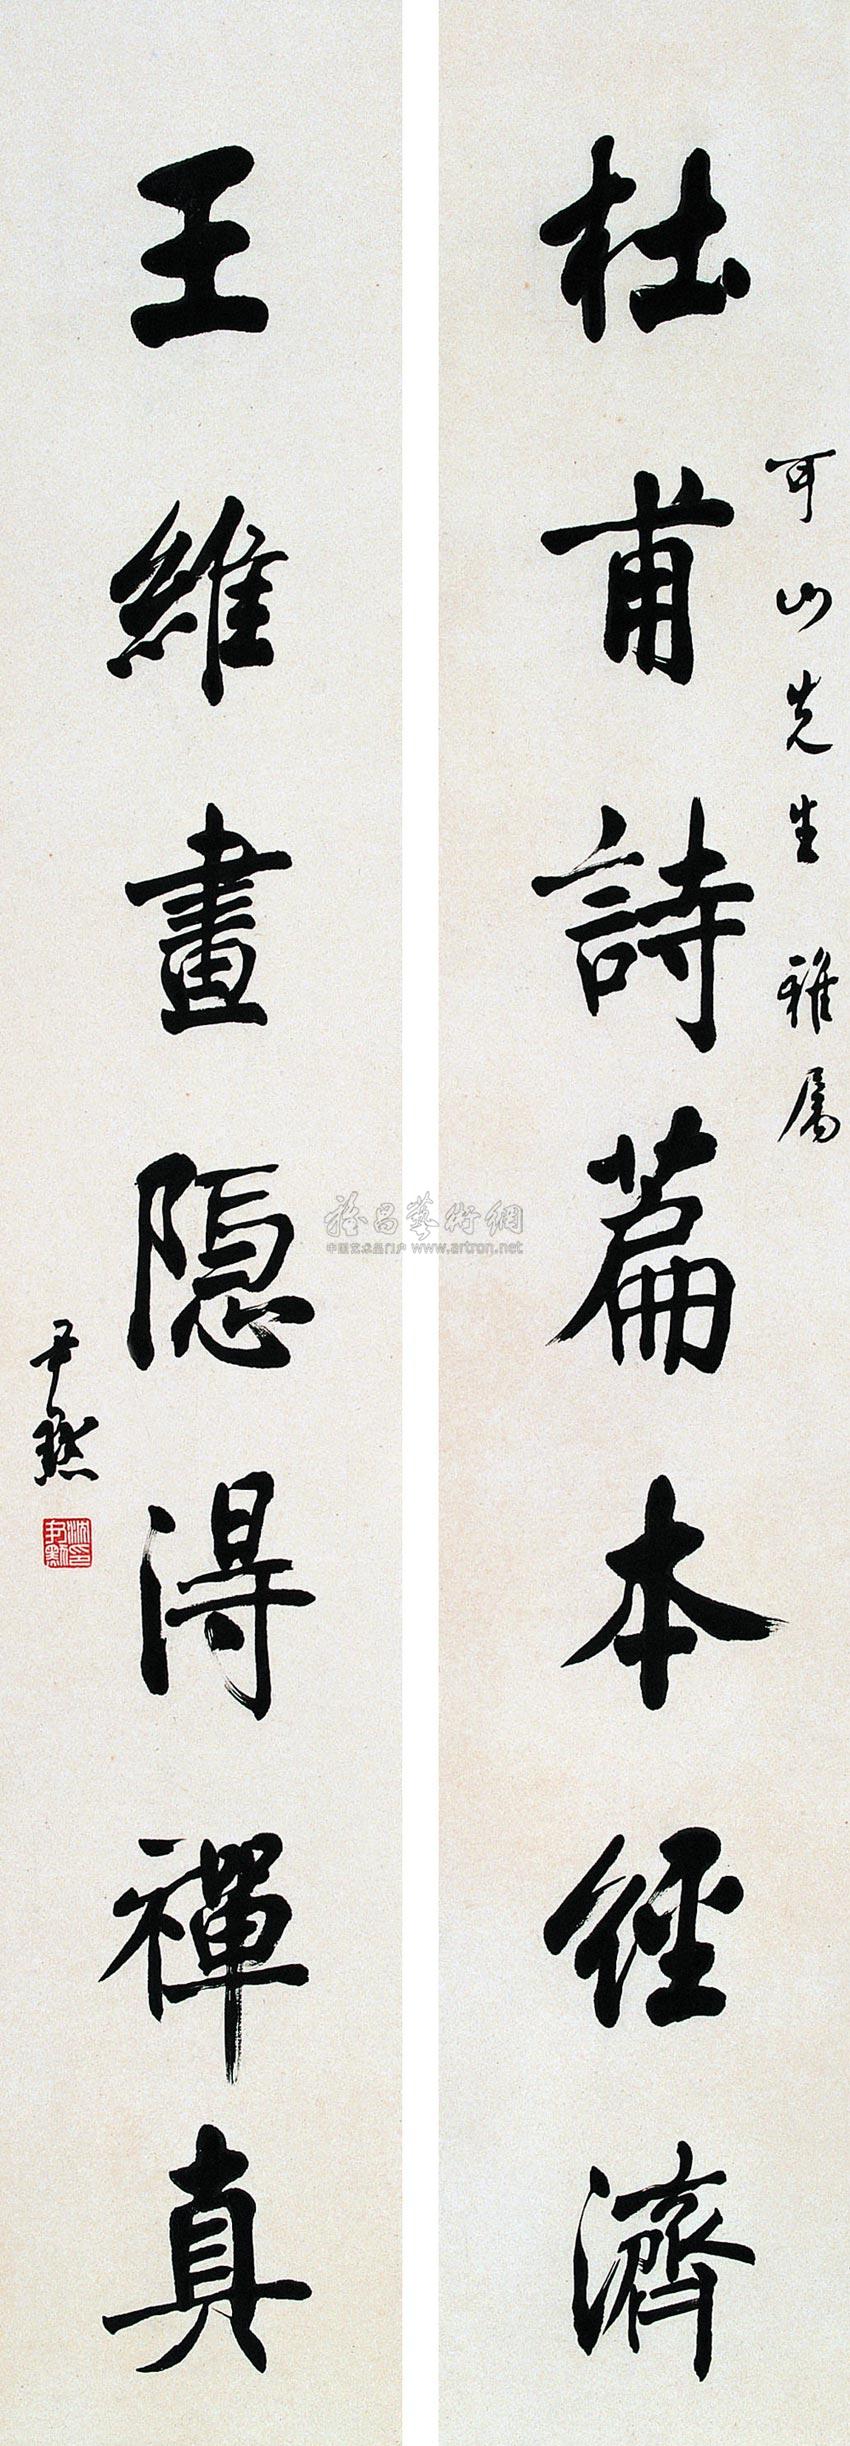 杜甫詩篇本經濟
可山先生雅属
王維畫隱得禪真
尹默
沈尹默印
雅昌藝術網
中国艺术品门户 www.artron.net